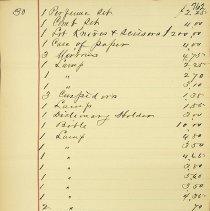 762
30 1 Perfume Set 2.25
1 Coat Set 4.00
1 Pot Knives & Scissors 1200.50
1 Case of Paper 4.00
3 4.75
1 Lamp 2.25
1 " 2.70
1 " 3.10
3 Cuspidors 1.35
1 Lamp 1.50
1 Dictionary Holder 3.00
1 Bible 10.00
1 Lamp 4.50
1 " 3.50
1 " 4.25
1 "
1 " 3.60
1 " 3.50
1 " 4.35
2 " 70